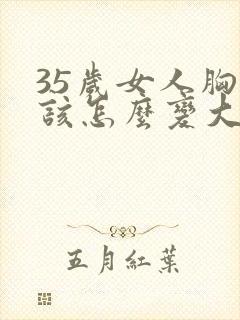 35歲女人胸
該怎麼變大
五月紅葉